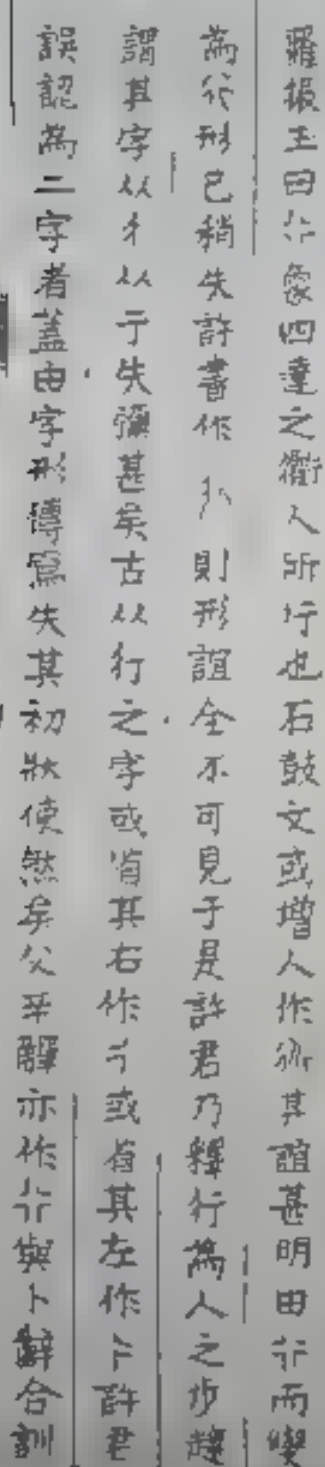 羅振玉曰 象四達之衢人所行也石鼓文或增人作 其誼甚明由 而變
為 形已稍失許書作 則形誼全不可見于是許君乃釋行為人之步趨
謂其字从彳从亍失彌甚矣古从行之字或省其右作 或省其左作 許君
誤認為二字者蓋由字形傳寫失其初狀使然矣父辛觶亦作 與卜辭合訓